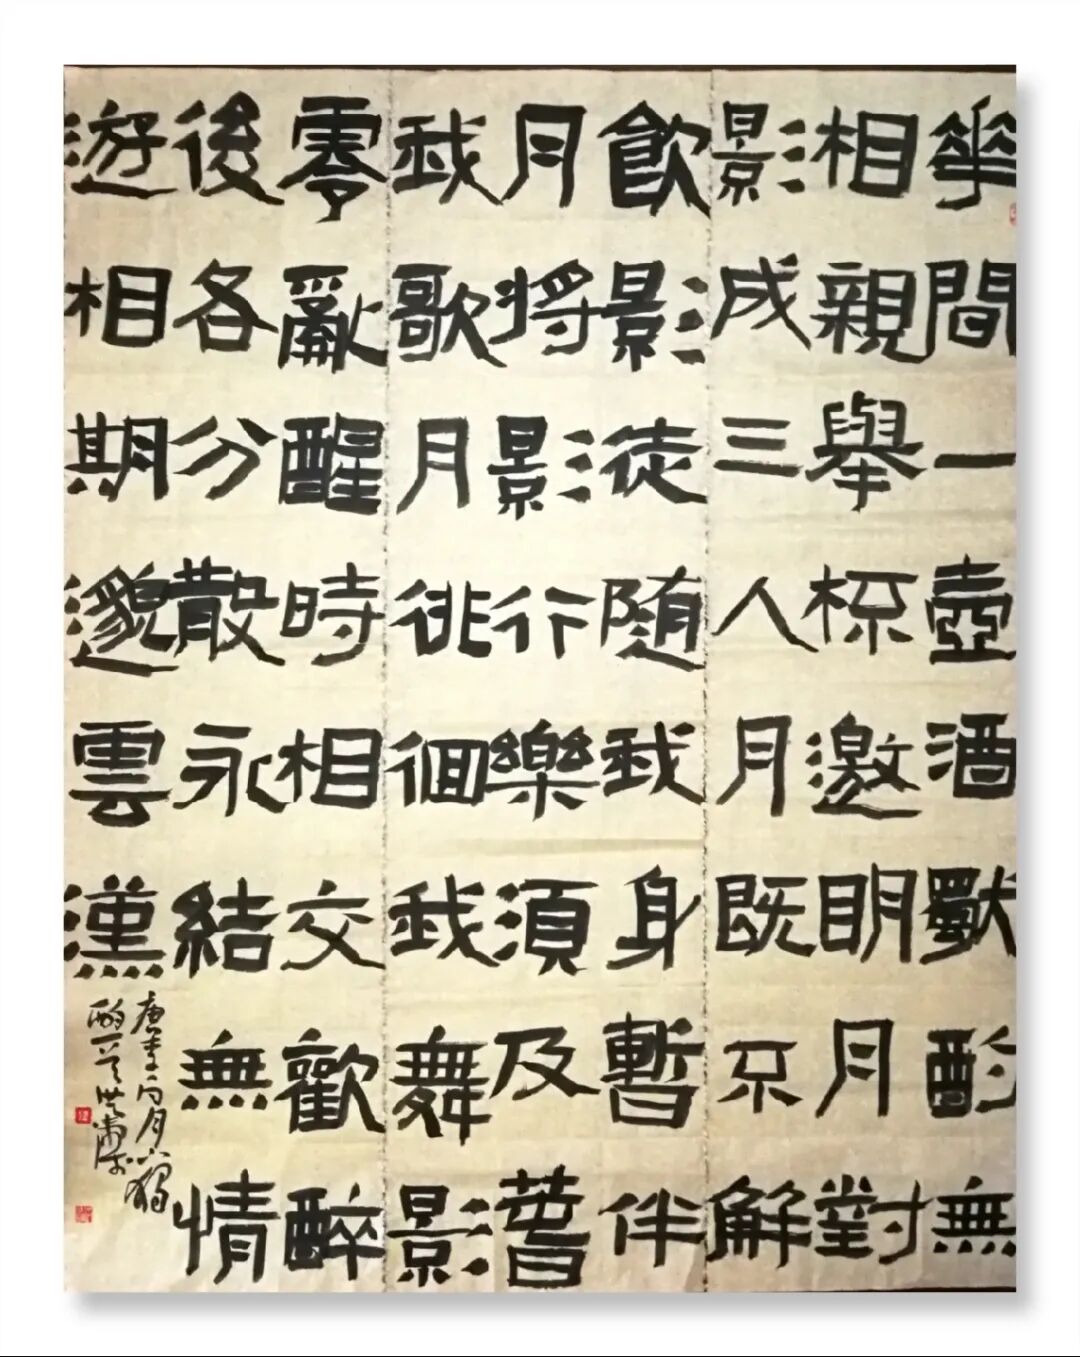 華間一壺酒獨酌無
相親舉杯邀明月對
影成三人月既不解
飲影徒随我身暫伴
月將影行樂須及春
我歌月徘徊我舞影
零亂醒時相交歡醉
後各分散永結無情
遊相期邈雲漢
唐李白月下獨
酌一首